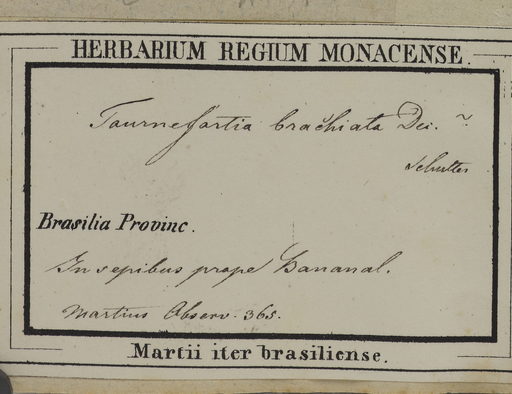 HERBARIUM REGIUM MONACENSE.
Tournefortia brachiata Dec. ~
Schultes
Brasilia Provinc.
In sepibus prope Bananal.
Martius Observ. 365.
Martii iter brasiliense.